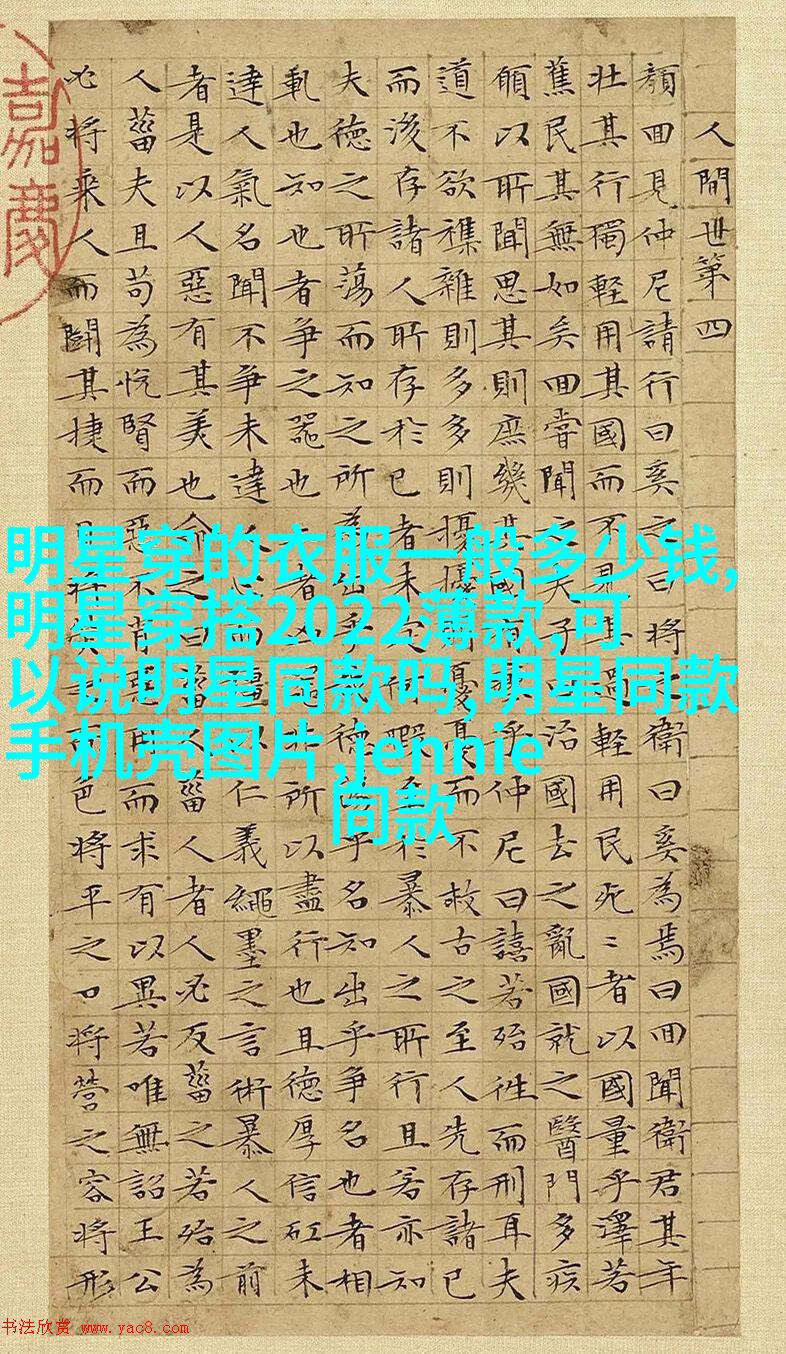 人間世第四
顏回見仲尼請行曰奚之曰將之衛曰奚為焉曰回聞衛君其年
壯其行獨輕用其國而不見其過輕用民死〻者以國量乎澤若
蕉民其無如矣回嘗聞之夫子曰治國去之亂國就之醫門多疾
願以所聞思其則庶幾其國有瘳乎仲尼曰譆若殆往而刑耳夫
道不欲襍雜則多多則擾擾則憂憂而不救古之至人先存諸已
而後存諸人所存於已者未定何暇至於暴人之所行且若亦知
夫德之所蕩而知之所為出乎德蕩乎名知出乎爭名也者相
軋也知也者爭之器也二者凶器非所以盡行也且德厚信矼未
達人氣名聞不爭未達人心而彊以仁義繩墨之言術暴人之前
者是以人惡有其美也命之曰菑人菑人者人必反菑之若殆為
人菑夫且苟為悅賢而惡不肖惡用而求有以異若唯無詔王公
必將乘人而鬭其捷而目將熒之而色將平之口將營之容將形
嘉慶
明星穿的衣服一般多少钱,
明星穿搭2022薄款,可
以说明星同款吗,明星同款
手机壳图片,jennie
同款
书法欣赏 www.yac8.com